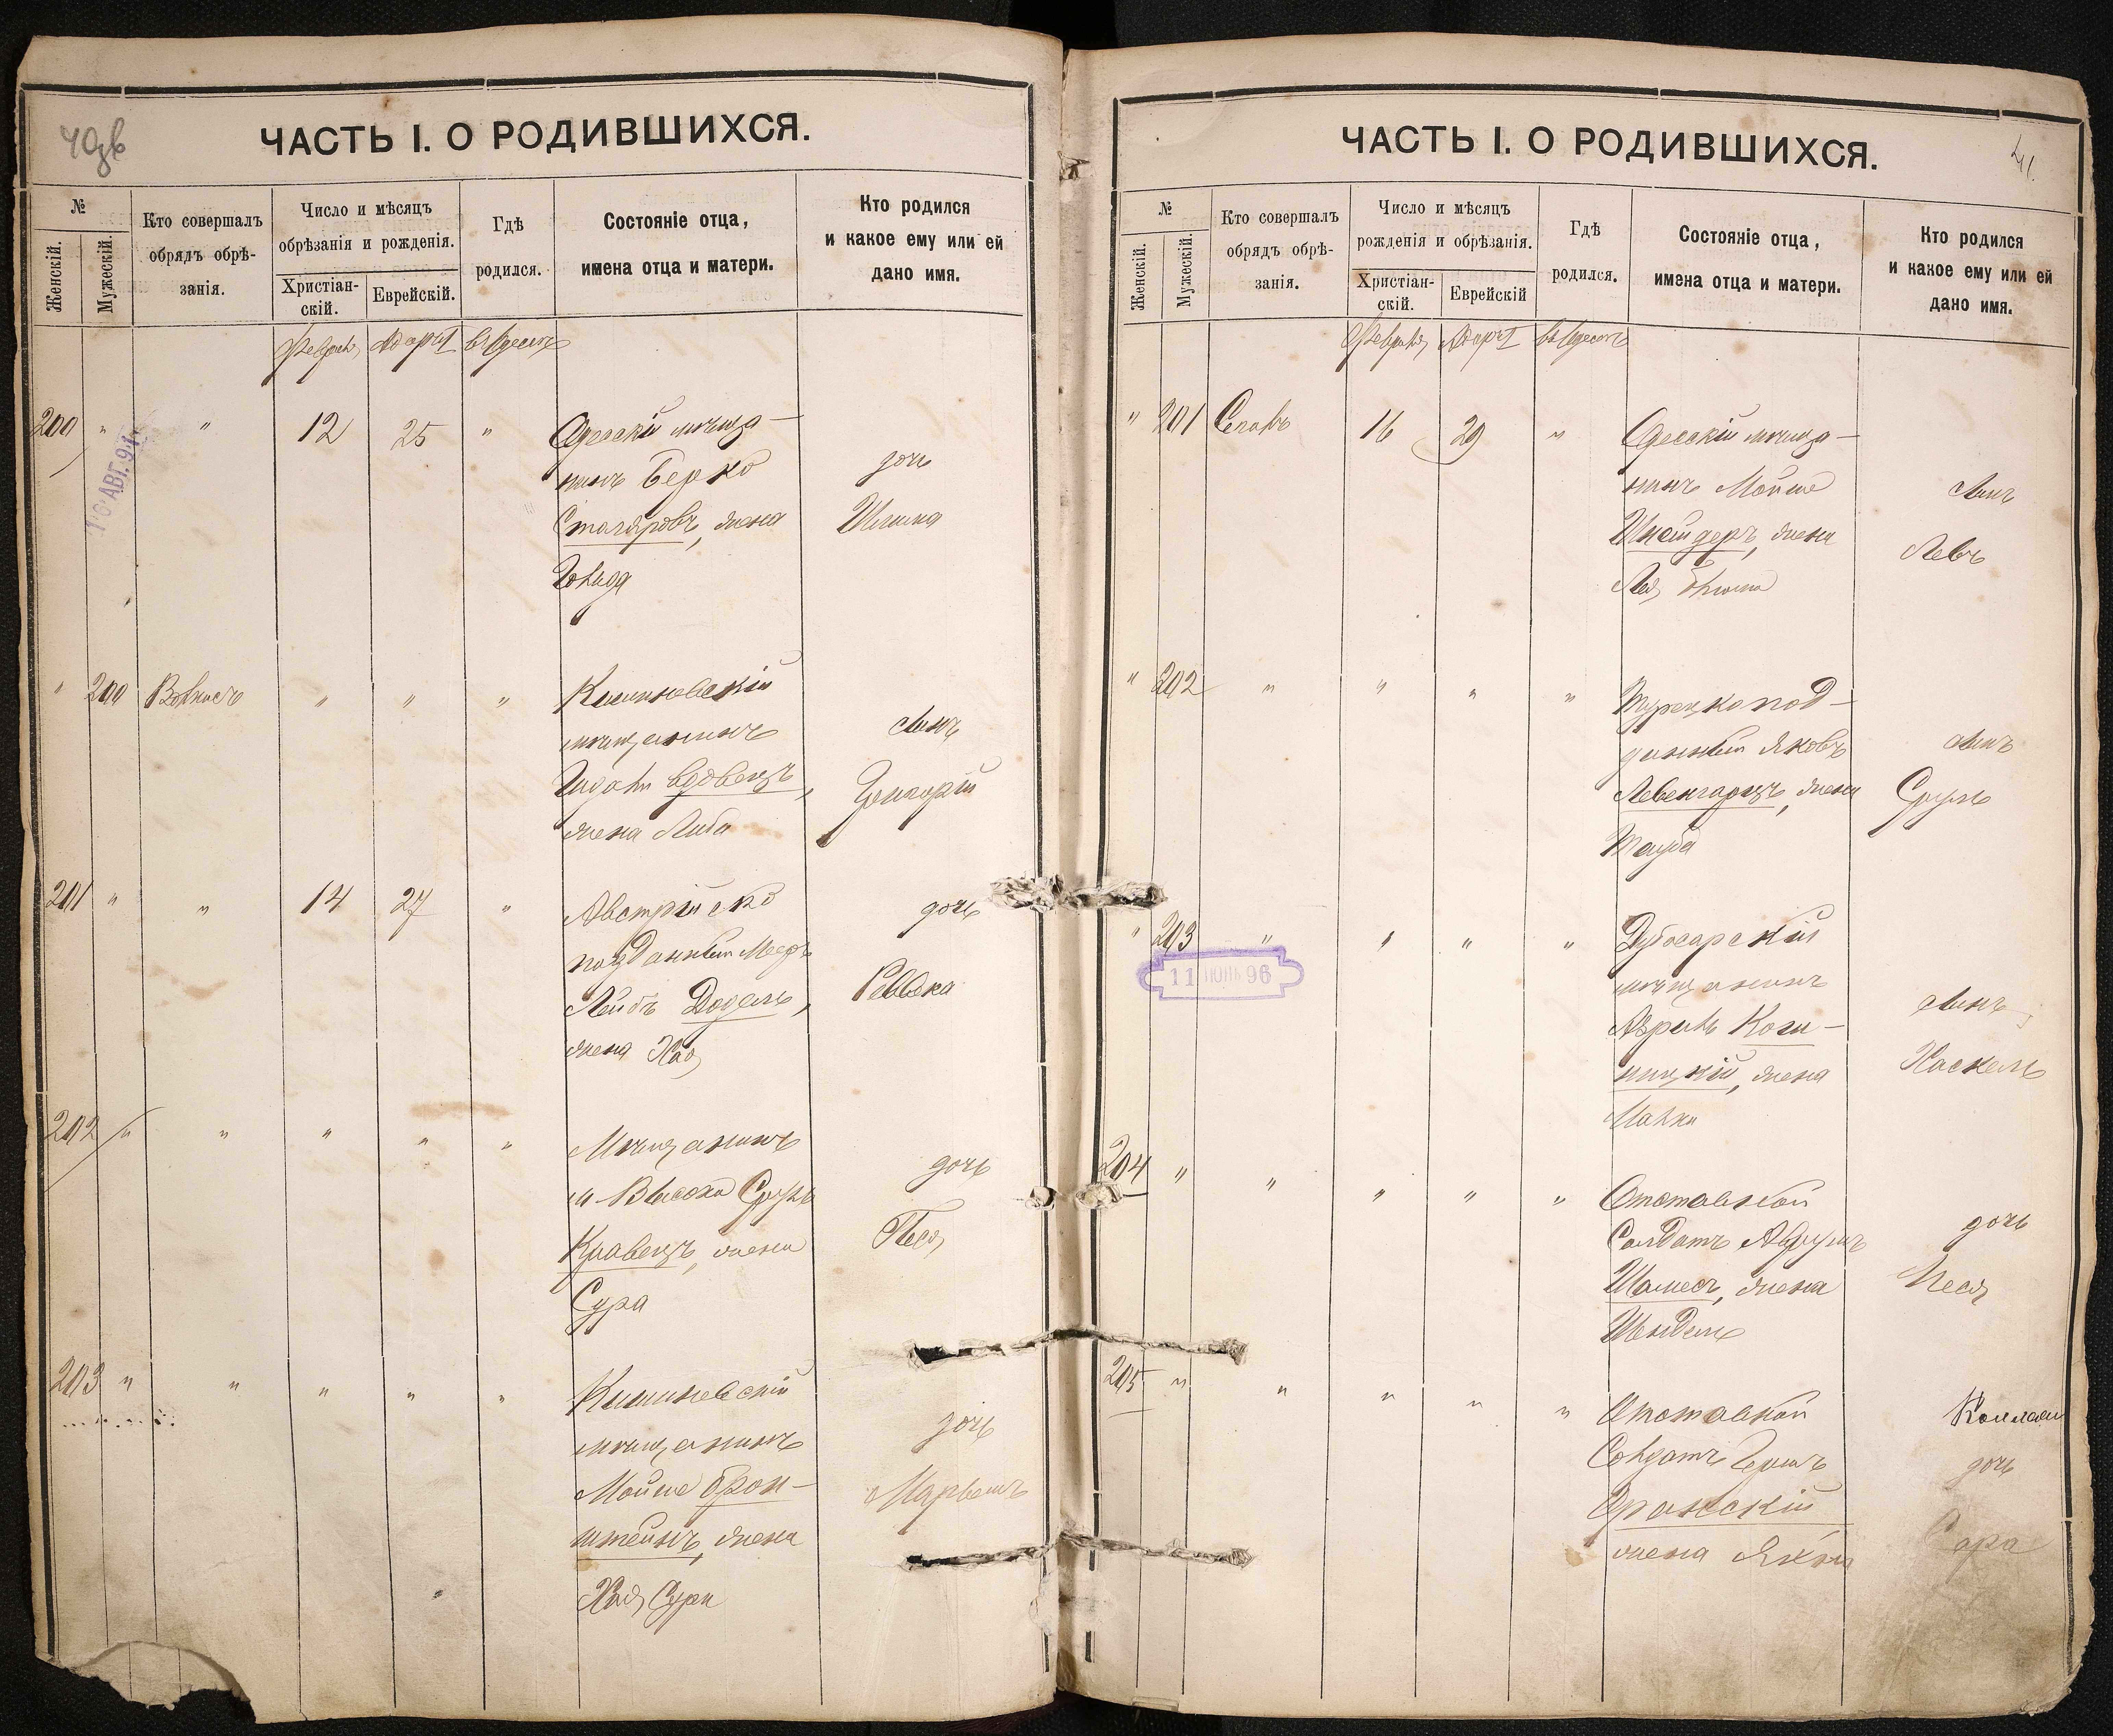 ЧАСТЬ I. О РОДИВШИХСЯ.
№
Женскій.
Мужескій.
Кто совершалъ
обрядъ обрѣ-
занія.
Число и мѣсяцъ
обрѣзанія и рожденія.
Христіан-
скій.
Еврейскій.
Гдѣ
родился.
Состояніе отца,
имена отца и матери.
Кто родился
и какое ему или ей
дано имя.
Февраля Адаръ I въ Одессѣ
200 " " 12 25 " Одесскій мѣща-
нинъ Берко
Столяровъ, жена
Гольда
дочь
16 АВГ. 91
" 200 " " "
Кишиневскій
мѣщанинъ
Вдовецъ,
жена Либа
сынъ
201 " " 14 27 " Австрійско
подданный Мееръ
Лейбъ
жена Хая
дочь
Ревека
202 " " " " " Мѣщанинъ
Сруль
Кравецъ, жена
Сура
дочь
Песя
203 " " " " " Кишиневскій
мѣщанинъ
Мойше Брон-
штейнъ, жена
Хая Сура
дочь
ЧАСТЬ I. О РОДИВШИХСЯ.
41.
№
Женскій.
Мужескій.
Кто совершалъ
обрядъ обрѣ-
занія.
Число и мѣсяцъ
рожденія и обрѣзанія.
Христіан-
скій.
Еврейскій
Гдѣ
родился.
Состояніе отца,
имена отца и матери.
Кто родился
и какое ему или ей
дано имя.
Февраля Адаръ I въ Одессѣ
" 201 16 29 " Одесскій мѣща-
нинъ Мойше
Шнейдеръ, жена
Лея
сынъ
Левъ
" 202 " " " " Турецкопод-
данный Яковъ
Левенгарцъ, жена
Тауба
сынъ
Сруль
" 203 " " " " Дубосарскій
мѣщанинъ
жена
Малка
сынъ
Хаскель
11 ИЮЛЬ 96
204 " " " " " Отставной
Солдатъ Аврумъ
Шамесъ, жена
Шендель
дочь
Песя
205 " " " " " Отставной
Солдатъ Гершъ
жена
дочь
Сара